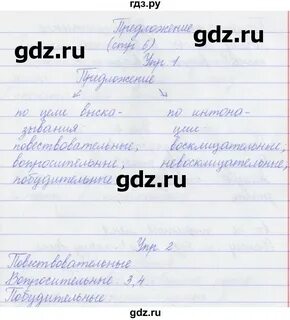 гдз.ру
Предложение
gdz.ru gdz.ru
(стр 6)
Упр 1
Предложение
по цели выска- по интона-
зывания ции
повествовательные, восклицательные,
вопросительные, невосклицательные,
побудительные
gdz.ru gdz.ru
Упр 2
Повествовательные
Вопросительные 3,4.
Побудительные